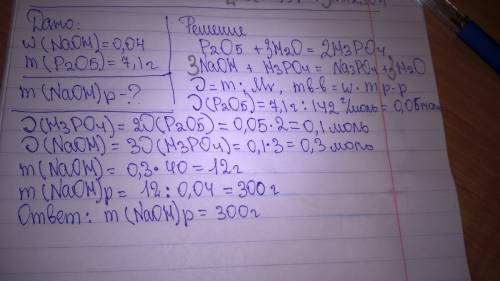 Дано:
w(NaOH)=0,04
m(P2O5)=7,1г
m(NaOH)р-?
Решение
P2O5+3H2O=2H3PO4
3NaOH+H3PO4=Na3PO4+3H2O
υ=m:Mr, mв-в=w·mр-р
υ(P2O5)=7,1г:142г/моль=0,05моль
υ(H3PO4)=2υ(P2O5)=0,05·2=0,1моль
υ(NaOH)=3υ(H3PO4)=0,1·3=0,3моль
m(NaOH)=0,3·40=12г
m(NaOH)р=12:0,04=300г
Ответ: m(NaOH)р=300г